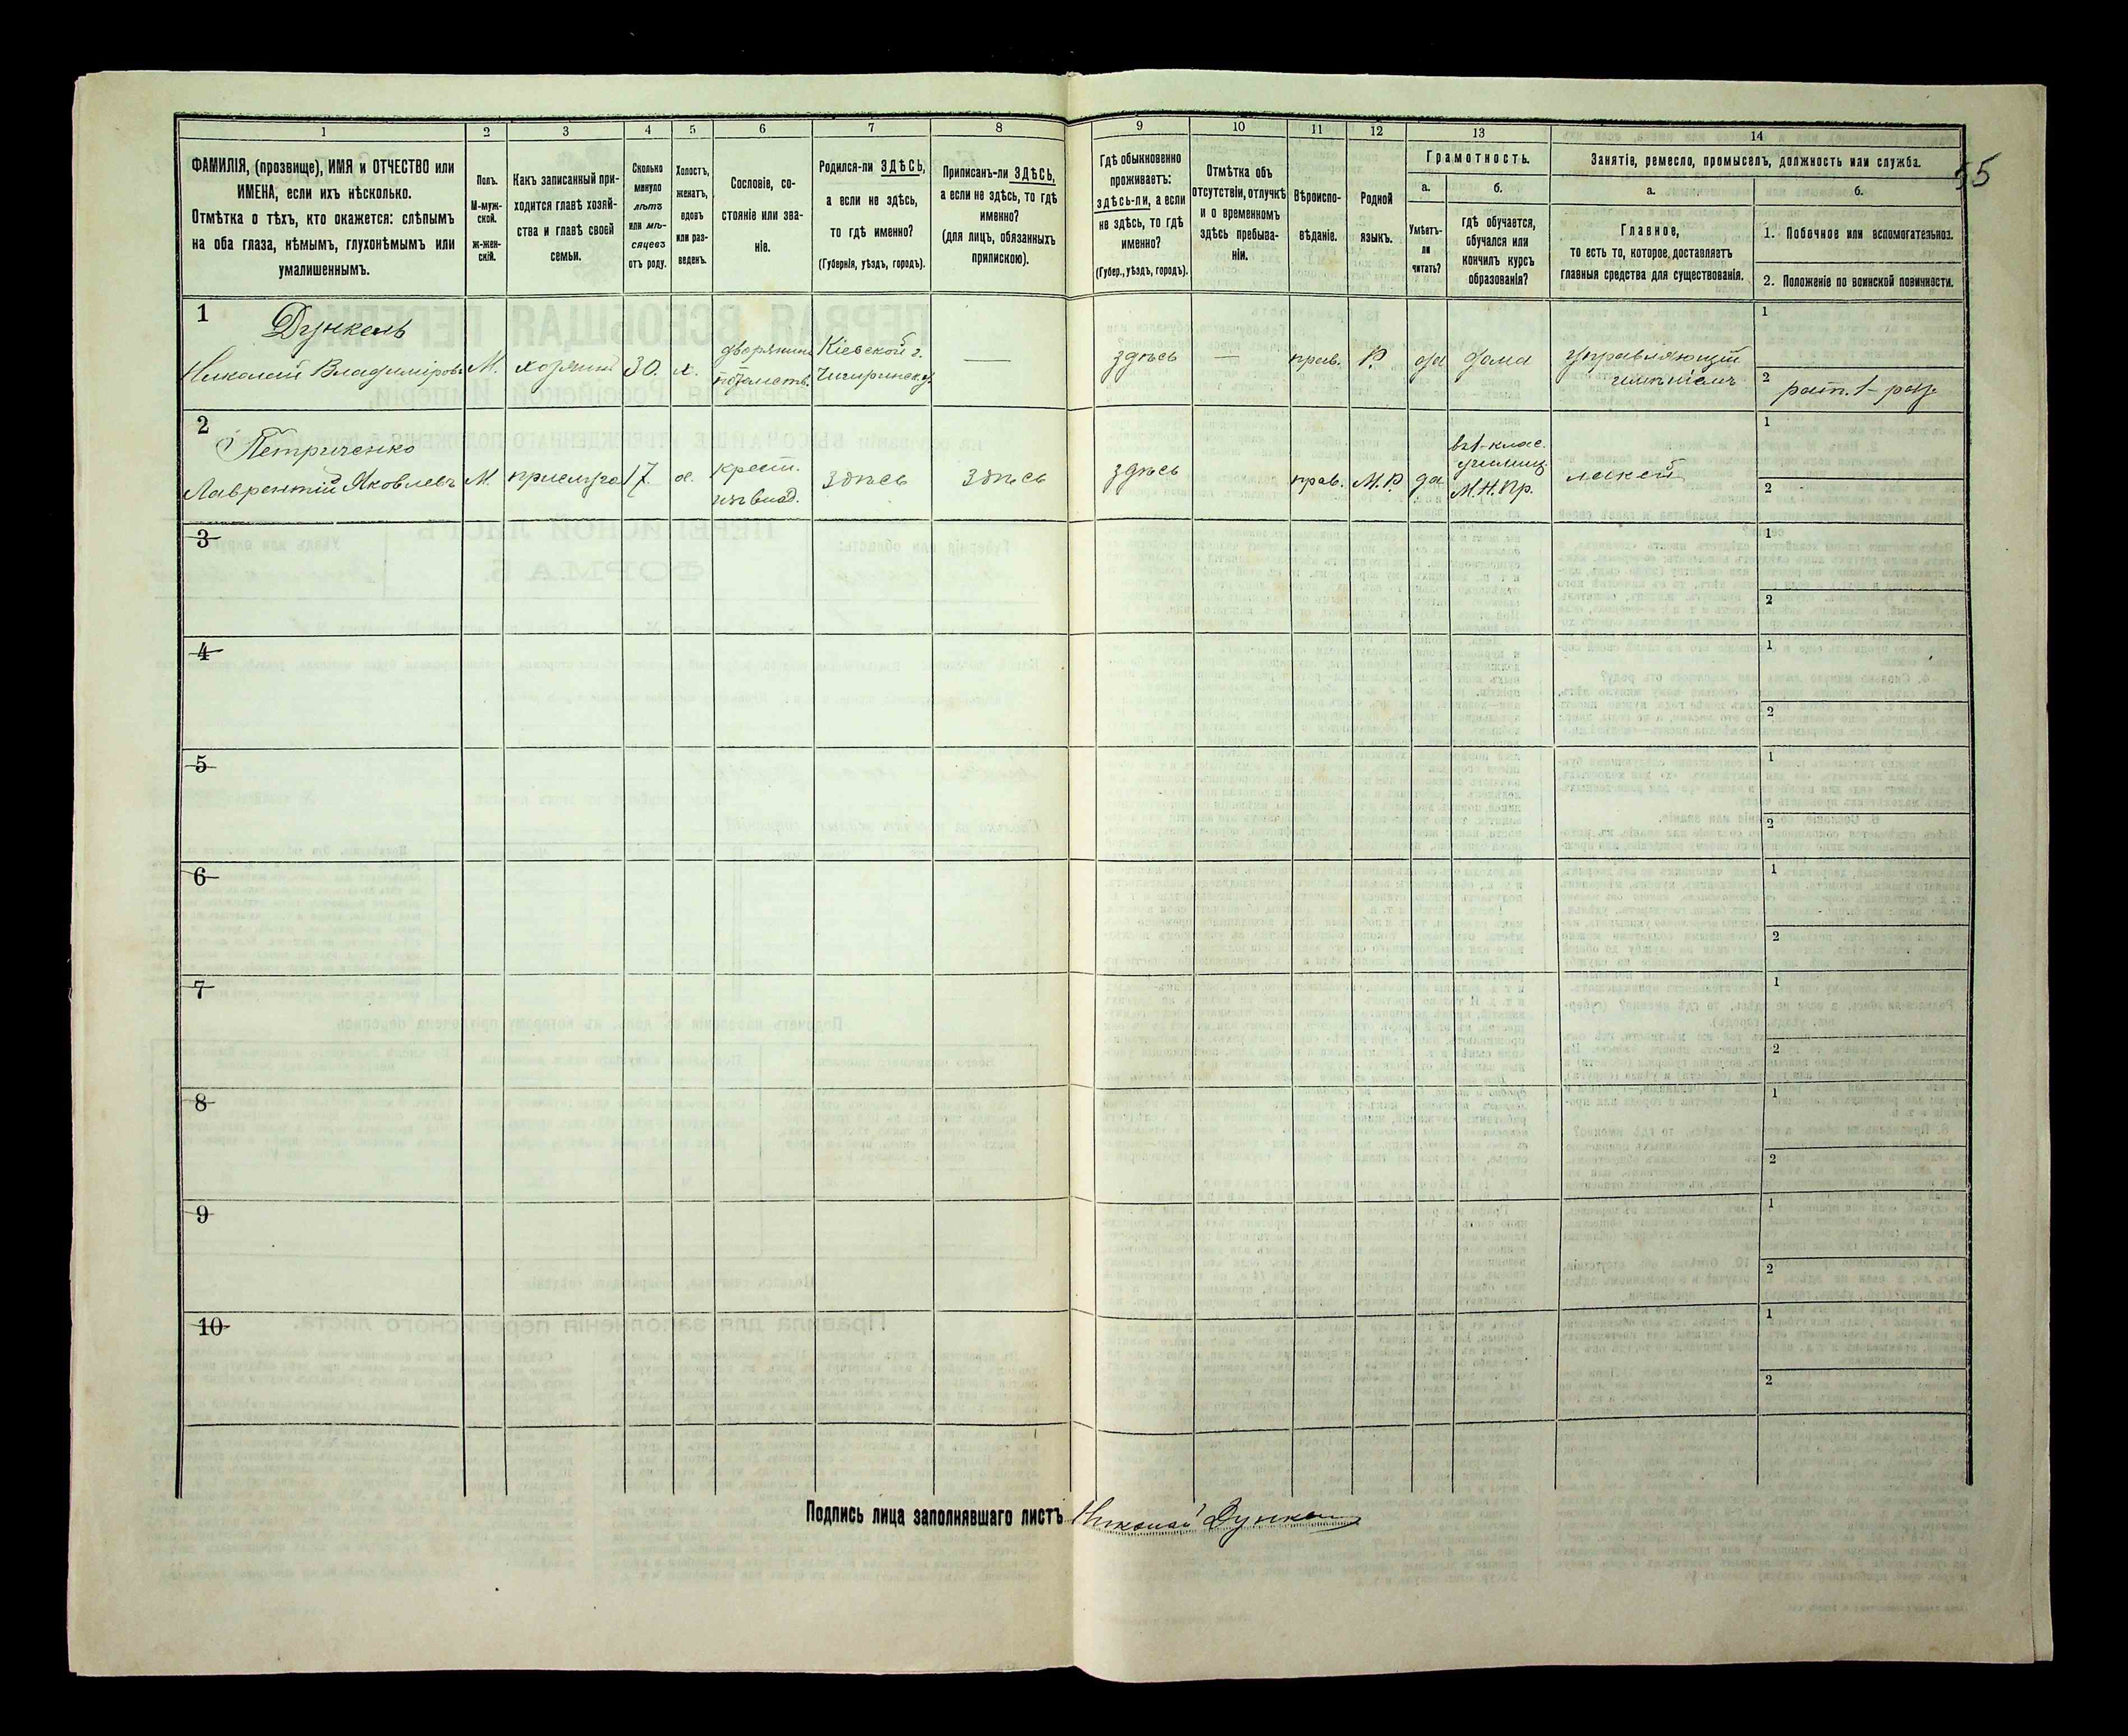 55
1 2 3 4 5 6 7 8 9 10 11 12 13 14
ФАМИЛІЯ, (прозвище), ИМЯ и ОТЧЕСТВО или
ИМЕНА, если ихъ нѣсколько.
Отмѣтка о тѣхъ, кто окажется: слѣпымъ
на оба глаза, нѣмымъ, глухонѣмымъ или
умалишеннымъ.
Полъ.
М-муж-
ской.
ж-жен-
скій.
Какъ записанный при-
ходится главѣ хозяй-
ства и главѣ своей
семьи.
Сколько
минуло
лѣтъ
или мѣ-
сяцевъ
отъ роду.
Холостъ,
женатъ,
вдовъ
или раз-
веденъ.
Сословіе, со-
стояніе или зва-
ніе.
Родился-ли ЗДѢСЬ,
а если не здѣсь,
то гдѣ именно?
(Губернія, уѣздъ, городъ).
Приписанъ-ли ЗДѢСЬ,
а если не здѣсь, то гдѣ
именно?
(для лицъ, обязанныхъ
припискою).
Гдѣ обыкновенно
проживаетъ:
здѣсь-ли, а если
не здѣсь, то гдѣ
именно?
(Губер., уѣздъ, городъ).
Отмѣтка объ
отсутствіи, отлучкѣ
и о временномъ
здѣсь пребыва-
ніи.
Вѣроиспо-
вѣданіе.
Родной
языкъ.
Грамотность.
а.
Умѣетъ-
ли
читать?
б.
гдѣ обучается,
обучался или
кончилъ курсъ
образованія?
Занятіе, ремесло, промыселъ, должность или служба.
а.
Главное,
то есть то, которое доставляетъ
главныя средства для существованія.
б.
1. Побочное или вспомогательное.
2. Положеніе по воинской повинности.
1
Дункель
Николай Владиміровъ
М.
хозяинъ
30.
х.
дворянинъ
потомств.
Кіевской г.
Чигиринск. у.
—
здѣсь
—
прав.
Р.
да
дома
управляющій
имѣніемъ
1
2 ратн. 1 – раз.
2
Петриченко
Лаврентій Яковлевъ
М.
17
х.
крест.
изъ влад.
здѣсь
здѣсь
здѣсь
прав.
М.Р.
да
въ 1-клас.
училищ.
М.Н.Пр.
лакей
1
2
3
1
2
4
1
2
5
1
2
6
1
2
7
1
2
8
1
2
9
1
2
10
1
2
Подпись лица заполнявшаго листъ Николай Дункель